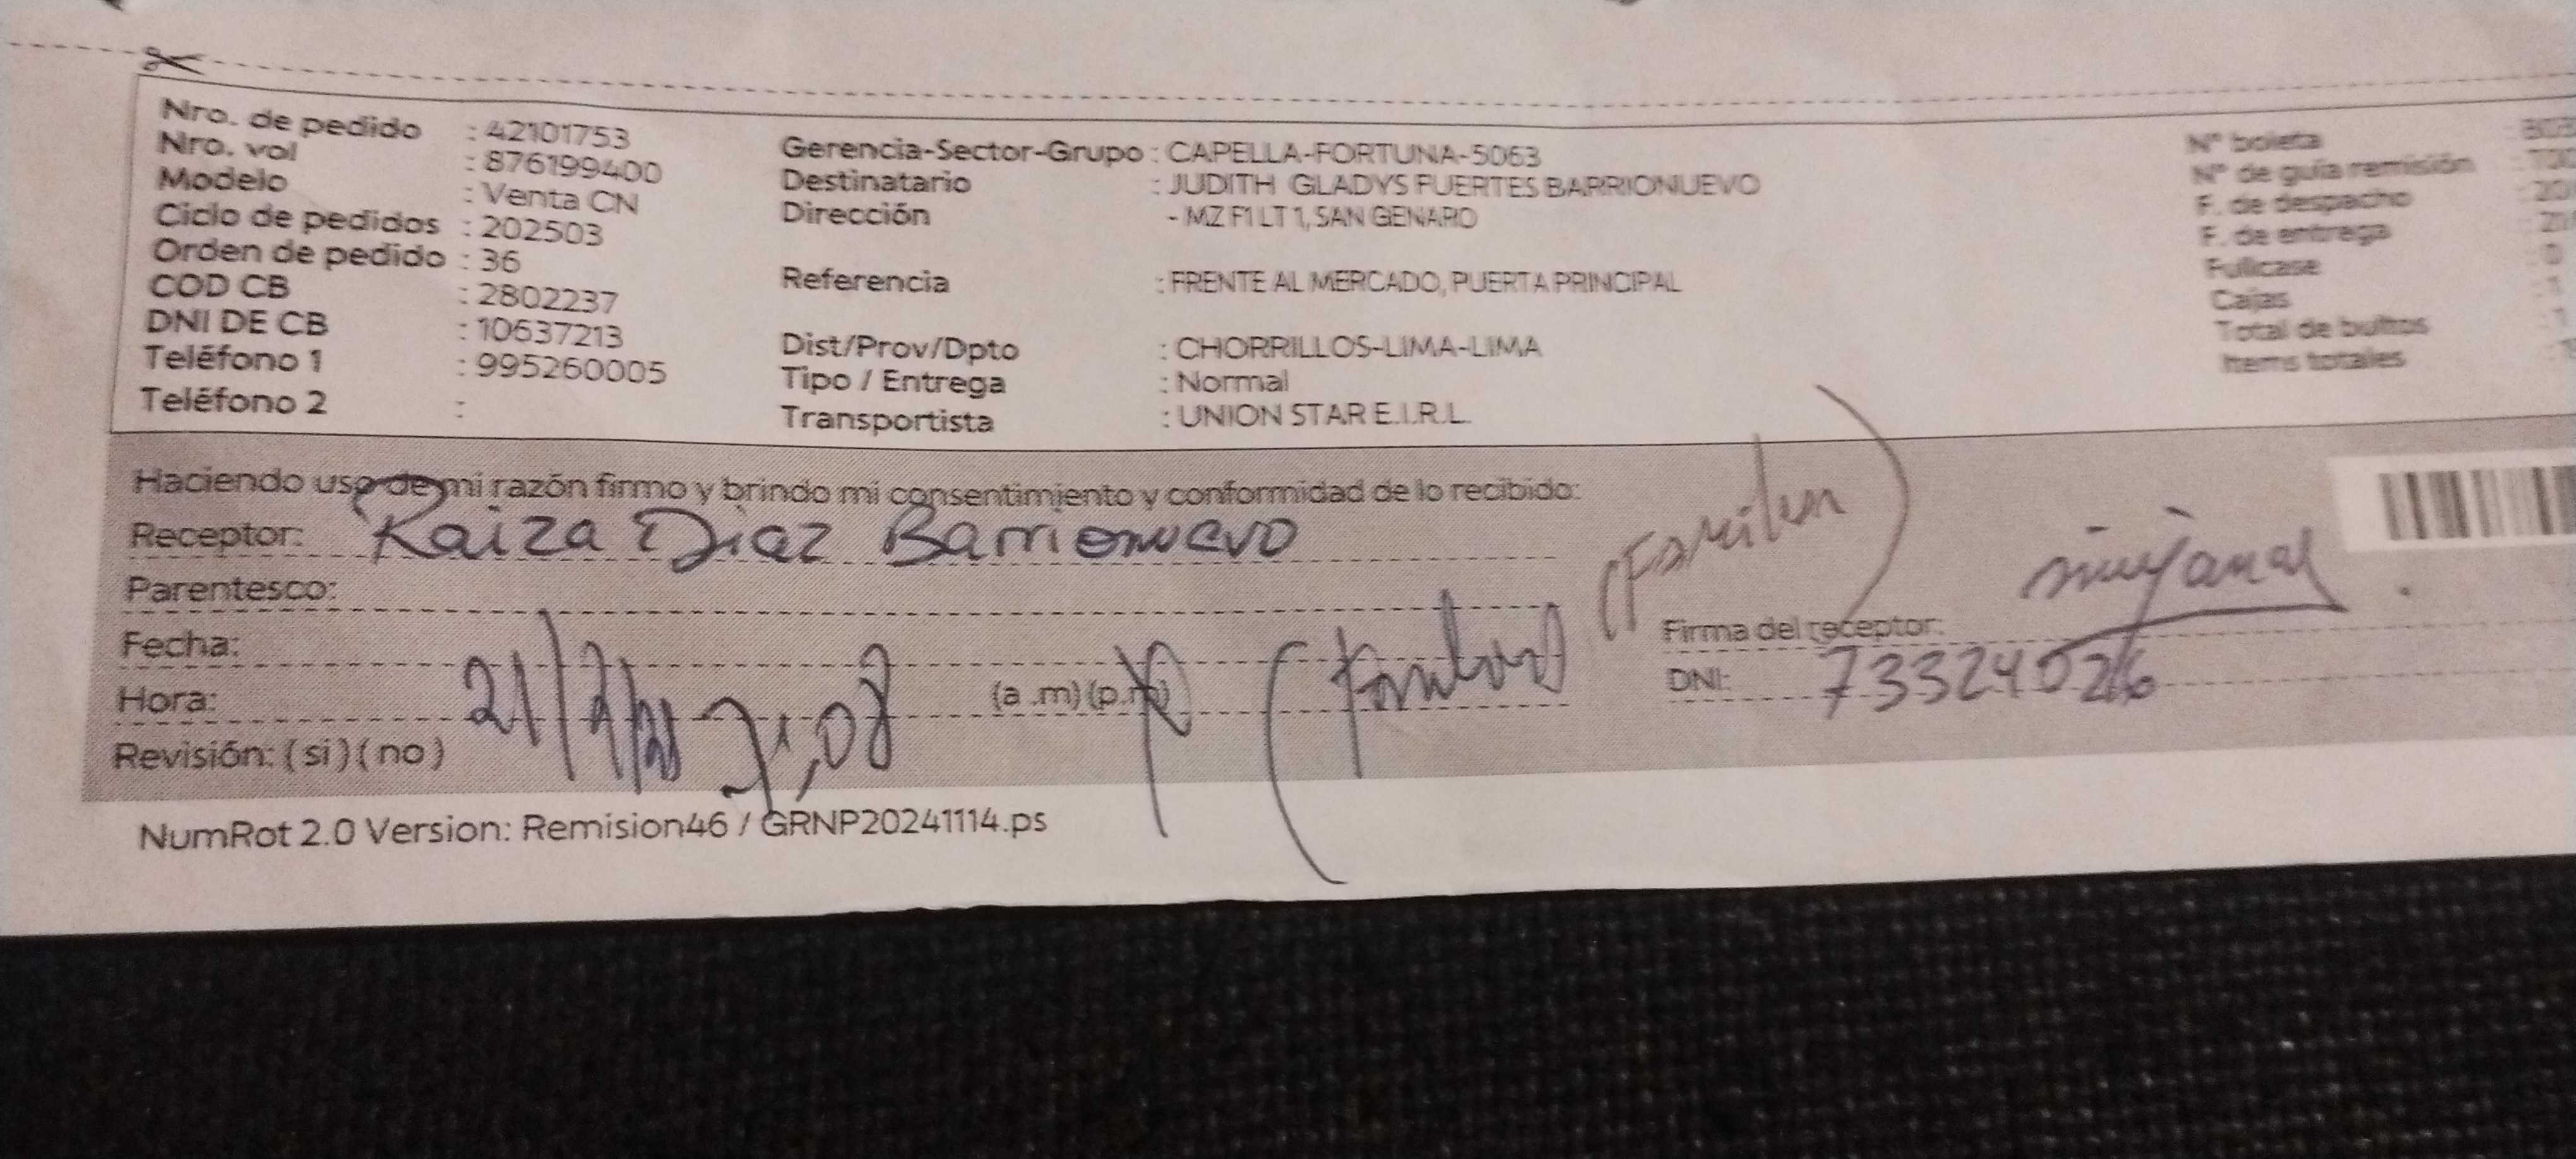 Nro. de pedido : 42101753
Nro. vol : 876199400
Modelo : Venta CN
Ciclo de pedidos : 202503
Orden de pedido : 36
COD CB : 2802237
DNI DE CB : 10637213
Teléfono 1 : 995260005
Teléfono 2 :
Gerencia-Sector-Grupo : CAPELLA-FORTUNA-5063
Destinatario : JUDITH GLADYS FUERTES BARRIONUEVO
Dirección - MZ F1 LT 1, SAN GENARO
Referencia : FRENTE AL MERCADO, PUERTA PRINCIPAL
Dist/Prov/Dpto : CHORRILLOS-LIMA-LIMA
Tipo / Entrega : Normal
Transportista : UNION STAR E.I.R.L.
N° boleta :
N° de guía remisión :
F. de despacho :
F. de entrega :
Fullcase : 0
Cajas : 1
Total de bultos : 1
Items totales :
Haciendo uso de mi razón firmo y brindo mi consentimiento y conformidad de lo recibido:
Receptor: Raiza Diaz Barrionuevo
Parentesco:
Fecha:
Hora: (a .m) (p.m)
Revisión: ( si ) ( no )
Firma del receptor:
DNI: 73324526
NumRot 2.0 Version: Remision46 / GRNP20241114.ps